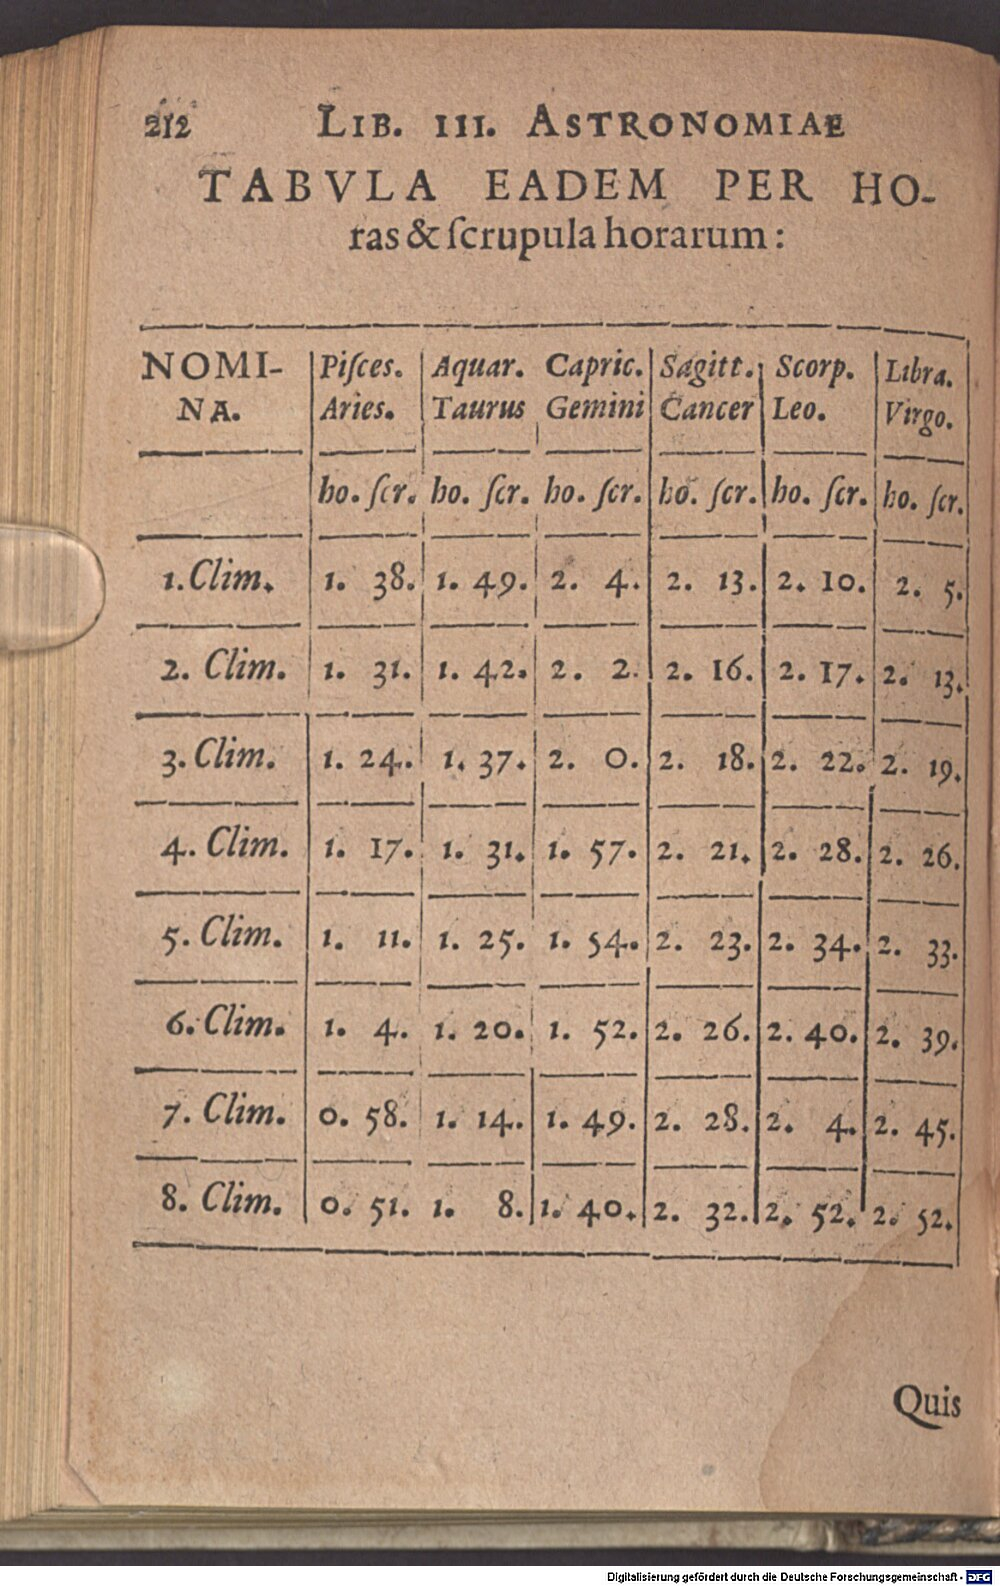 212 LIB. III. ASTRONOMIAE
TABVLA EADEM PER HO-
ras & ſcrupula horarum:
NOMI- Piſces. Aquar. Capric. Sagitt. Scorp. Libra.
NA. Aries. Taurus Gemini Cancer Leo. Virgo.
ho. ſcr. ho. ſcr. ho. ſcr. ho. ſcr. ho. ſcr. ho. ſcr.
1. Clim. 1. 38. 1. 49. 2. 4. 2. 13. 2. 10. 2. 5.
2. Clim. 1. 31. 1. 42. 2. 2. 2. 16. 2. 17. 2. 13.
3. Clim. 1. 24. 1. 37. 2. 0. 2. 18. 2. 22. 2. 19.
4. Clim. 1. 17. 1. 31. 1. 57. 2. 21. 2. 28. 2. 26.
5. Clim. 1. 11. 1. 25. 1. 54. 2. 23. 2. 34. 2. 33.
6. Clim. 1. 4. 1. 20. 1. 52. 2. 26. 2. 40. 2. 39.
7. Clim. 0. 58. 1. 14. 1. 49. 2. 28. 2. 4. 2. 45.
8. Clim. 0. 51. 1. 8. 1. 40. 2. 32. 2. 52. 2. 52.
Quis
Digitalisierung gefördert durch die Deutsche Forschungsgemeinschaft - DFG